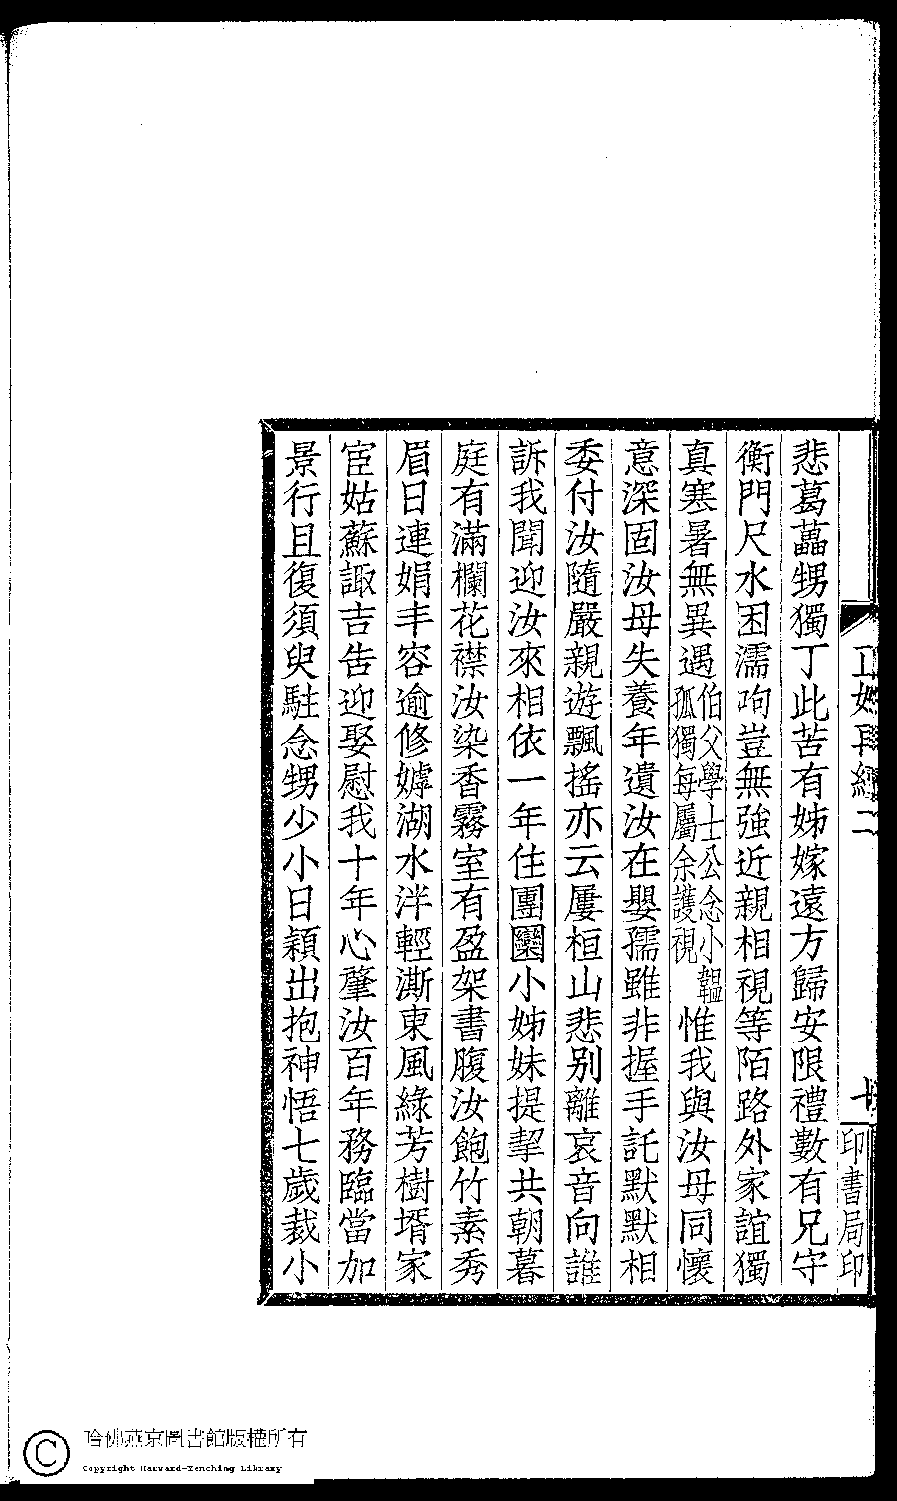 悲葛藟甥獨丁此苦有姊嫁遠方歸安限禮數有兄守
衡門尺水困濡呴豈無強近親相視等陌路外家誼獨
真寒暑無異遇伯父學士公念小韞孤獨每屬余護視惟我與汝母同懷
意深固汝母失養年遺汝在嬰孺雖非握手託默默相
委付汝隨嚴親遊飄搖亦云屢桓山悲別離哀音向誰
訴我聞迎汝來相依一年住團圞小姊妹提挈共朝暮
庭有滿欄花襟汝染香霧室有盈架書腹汝飽竹素秀
眉日連娟丰容逾修嫭湖水泮輕澌東風綠芳樹壻家
宦姑蘇諏吉告迎娶慰我十年心肇汝百年務臨當加
景行且復須臾駐念甥少小日穎出抱神悟七歲裁小
印書局印
哈佛燕京圖書館版權所有
Copyright Harvard-Yenching Library